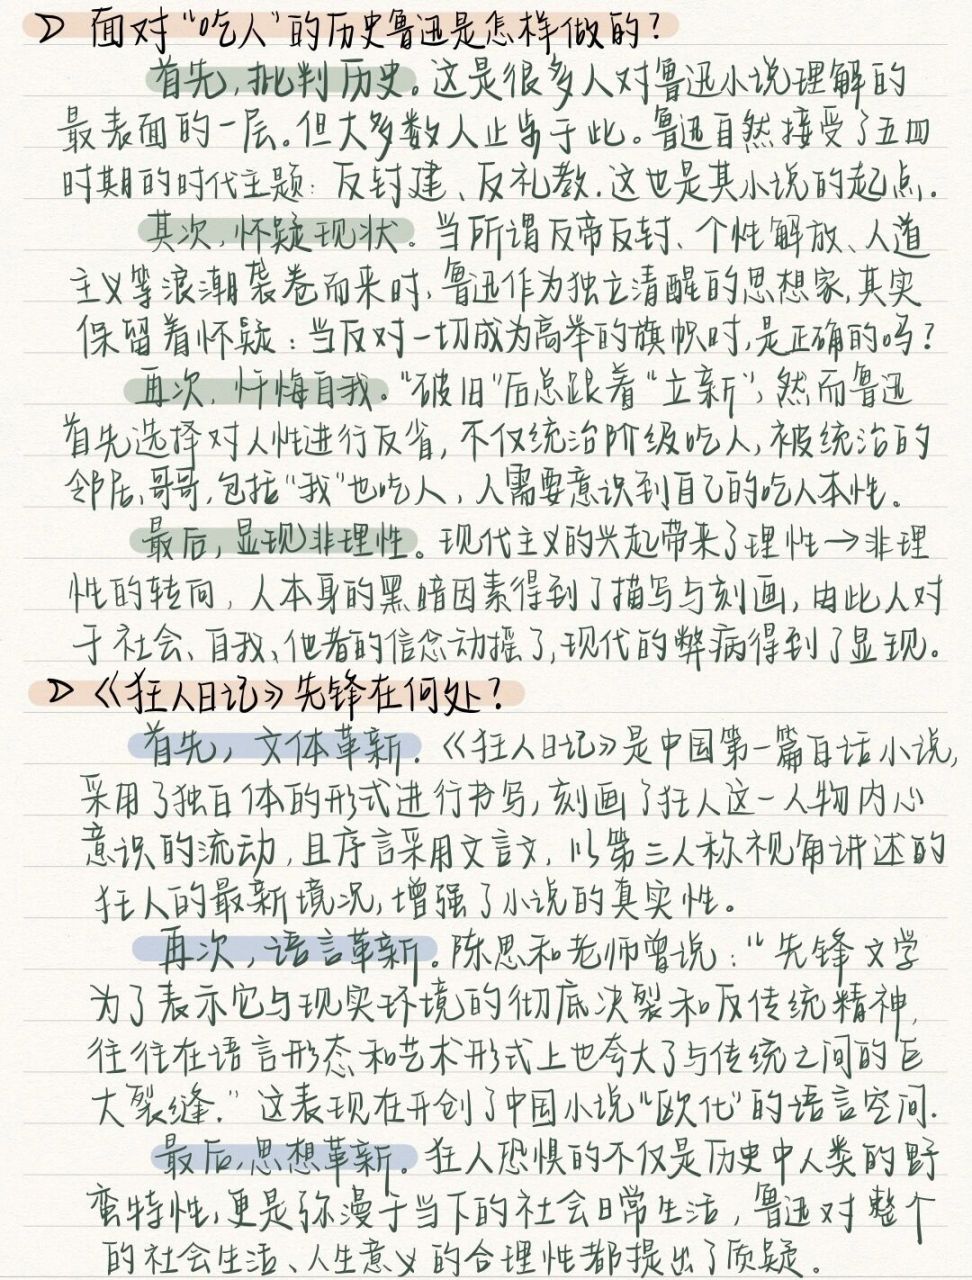 面对“吃人”的历史鲁迅是怎样做的？
首先，批判历史。这是很多人对鲁迅小说理解的
最表面的一层。但大多数人止步于此。鲁迅自然接受了五四
时期的时代主题：反封建、反礼教.这也是其小说的起点.
其次,怀疑现状。当所谓反帝反封、个性解放、人道
主义等浪潮袭卷而来时,鲁迅作为独立清醒的思想家,其实
保留着怀疑：当反对一切成为高举的旗帜时,是正确的吗？
再次，忏悔自我。“破旧”后总跟着“立新”，然而鲁迅
首先选择对人性进行反省，不仅统治阶级吃人,被统治的
邻居,哥哥,包括“我”也吃人，人需要意识到自己的吃人本性。
最后，显现非理性。现代主义的兴起带来了理性→非理
性的转向，人本身的黑暗因素得到了描写与刻画，由此人对
于社会、自我、他者的信念动摇了,现代的弊病得到了显现。
《狂人日记》先锋在何处？
首先，文体革新.《狂人日记》是中国第一篇白话小说,
采用了独白体的形式进行书写，刻画了狂人这一人物内心
意识的流动，且序言采用文言文，以第三人称视角讲述的
狂人的最新境况，增强了小说的真实性。
再次，语言革新。陈思和老师曾说：“先锋文学
为了表示它与现实环境的彻底决裂和反传统精神,
往往在语言形态和艺术形式上也夸大了与传统之间的巨
大裂缝.”这表现在开创了中国小说“欧化”的语言空间.
最后,思想革新。狂人恐惧的不仅是历史中人类的野
蛮特性,更是弥漫于当下的社会日常生活，鲁迅对整个
的社会生活、人生意义的合理性都提出了质疑。